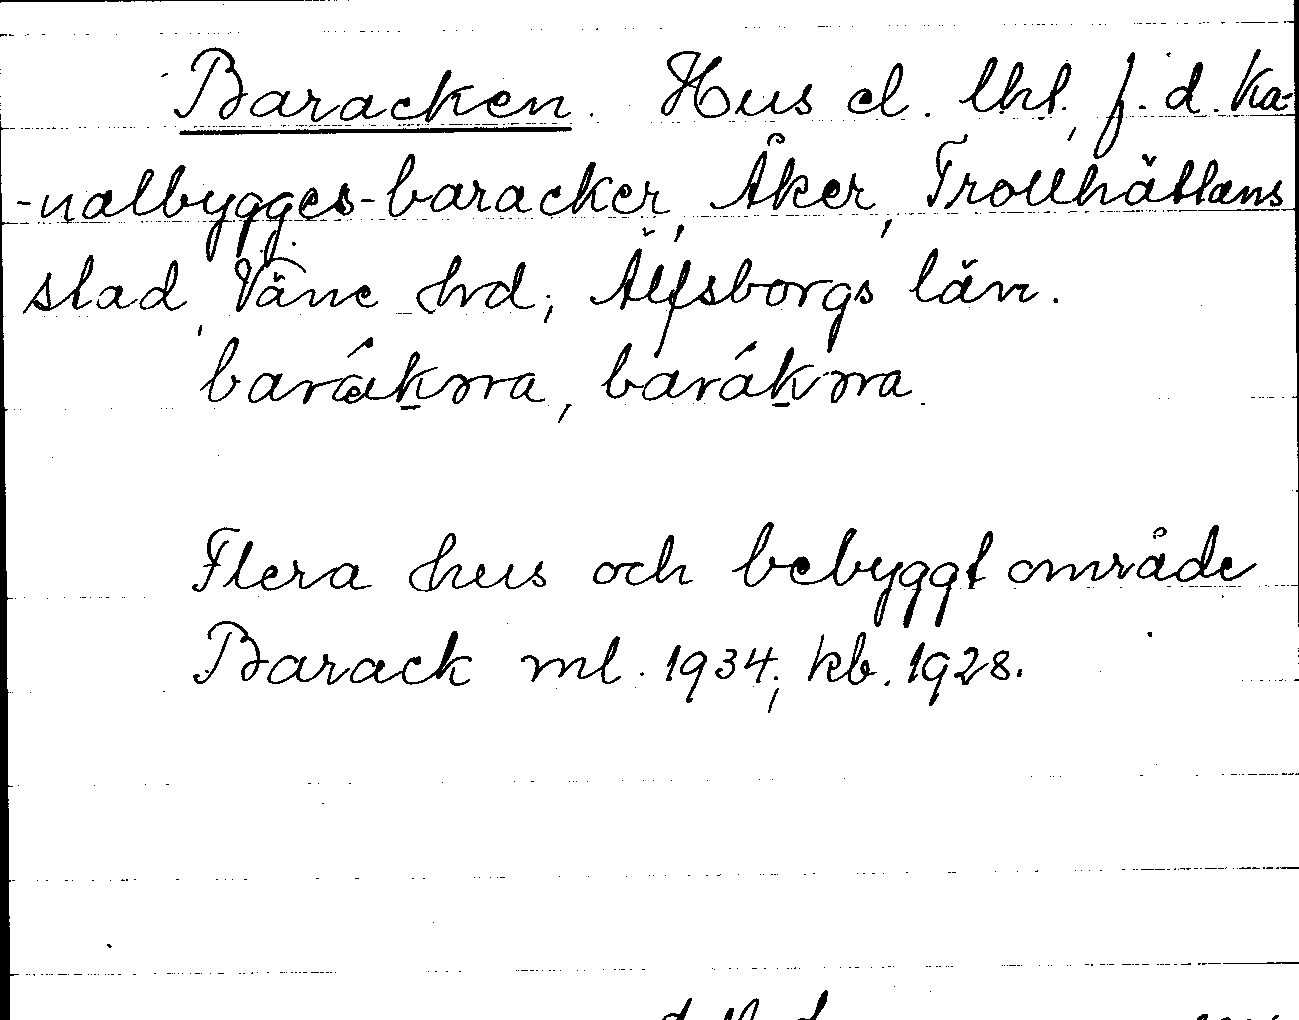 Baracken. Hus el. lht., f. d. Ka-
-nalbygges-baracker, Åker, Trollhättans
stad, Väne hrd; Älfsborgs län.
baráknna, baráknna.
Flera hus och bebyggt område
Barack ml. 1934; kb. 1928.